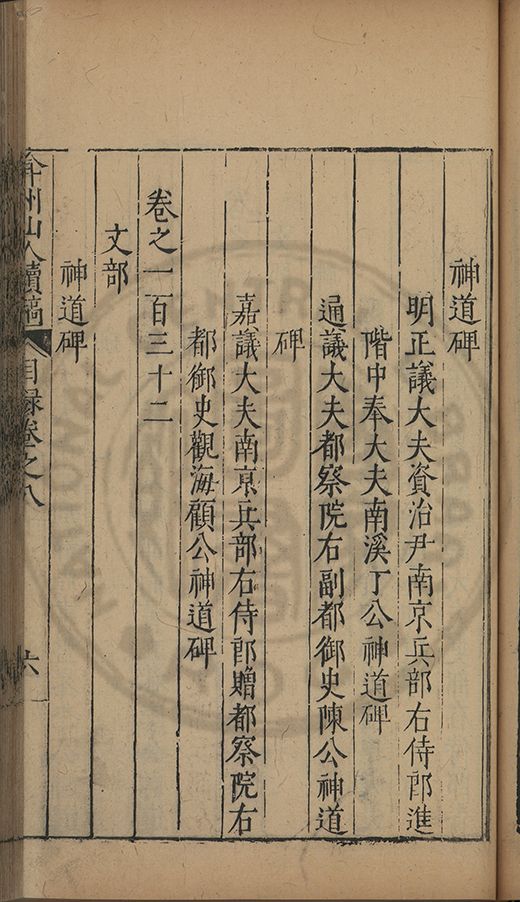 神道碑
明正議大夫資治尹南京兵部右侍郎進
階中奉大夫南溪丁公神道碑
通議大夫都察院右副都御史陳公神道
碑
嘉議大夫南京兵部右侍郎贈都察院右
都御史觀海顧公神道碑
卷之一百三十二
文部
神道碑
弇州山人續稿 目録卷之八 六